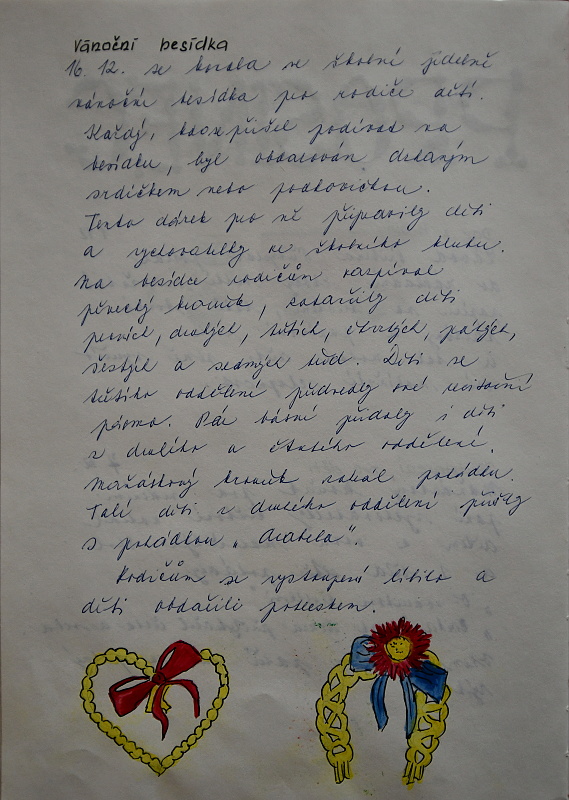 Vánoční besídka
16. 12. se konala ve školní jídelně
vánoční besídka pro rodiče dětí.
Každý, kdo přišel podívat na
besídku, byl obdarován
srdíčkem nebo podkovičkou.
Tento dárek pro ně připravily děti
a vychovatelky ve školního klubu.
Na besídce rodičům zazpíval
pěvecký kroužek, zatančily děti
prvních, druhých, třetích, čtvrtých, pátých,
šestých a sedmých tříd. Děti ze
třetího oddělení předvedly své recitační
pásmo. Pár básní přidaly i děti
z druhého a čtvrtého oddělení.
Maňáskový kroužek zahrál pohádku.
Také děti z druhého oddělení přišly
s pohádkou „Arabela"
Rodičům se vystoupení líbilo a
děti obdařili potleskem.